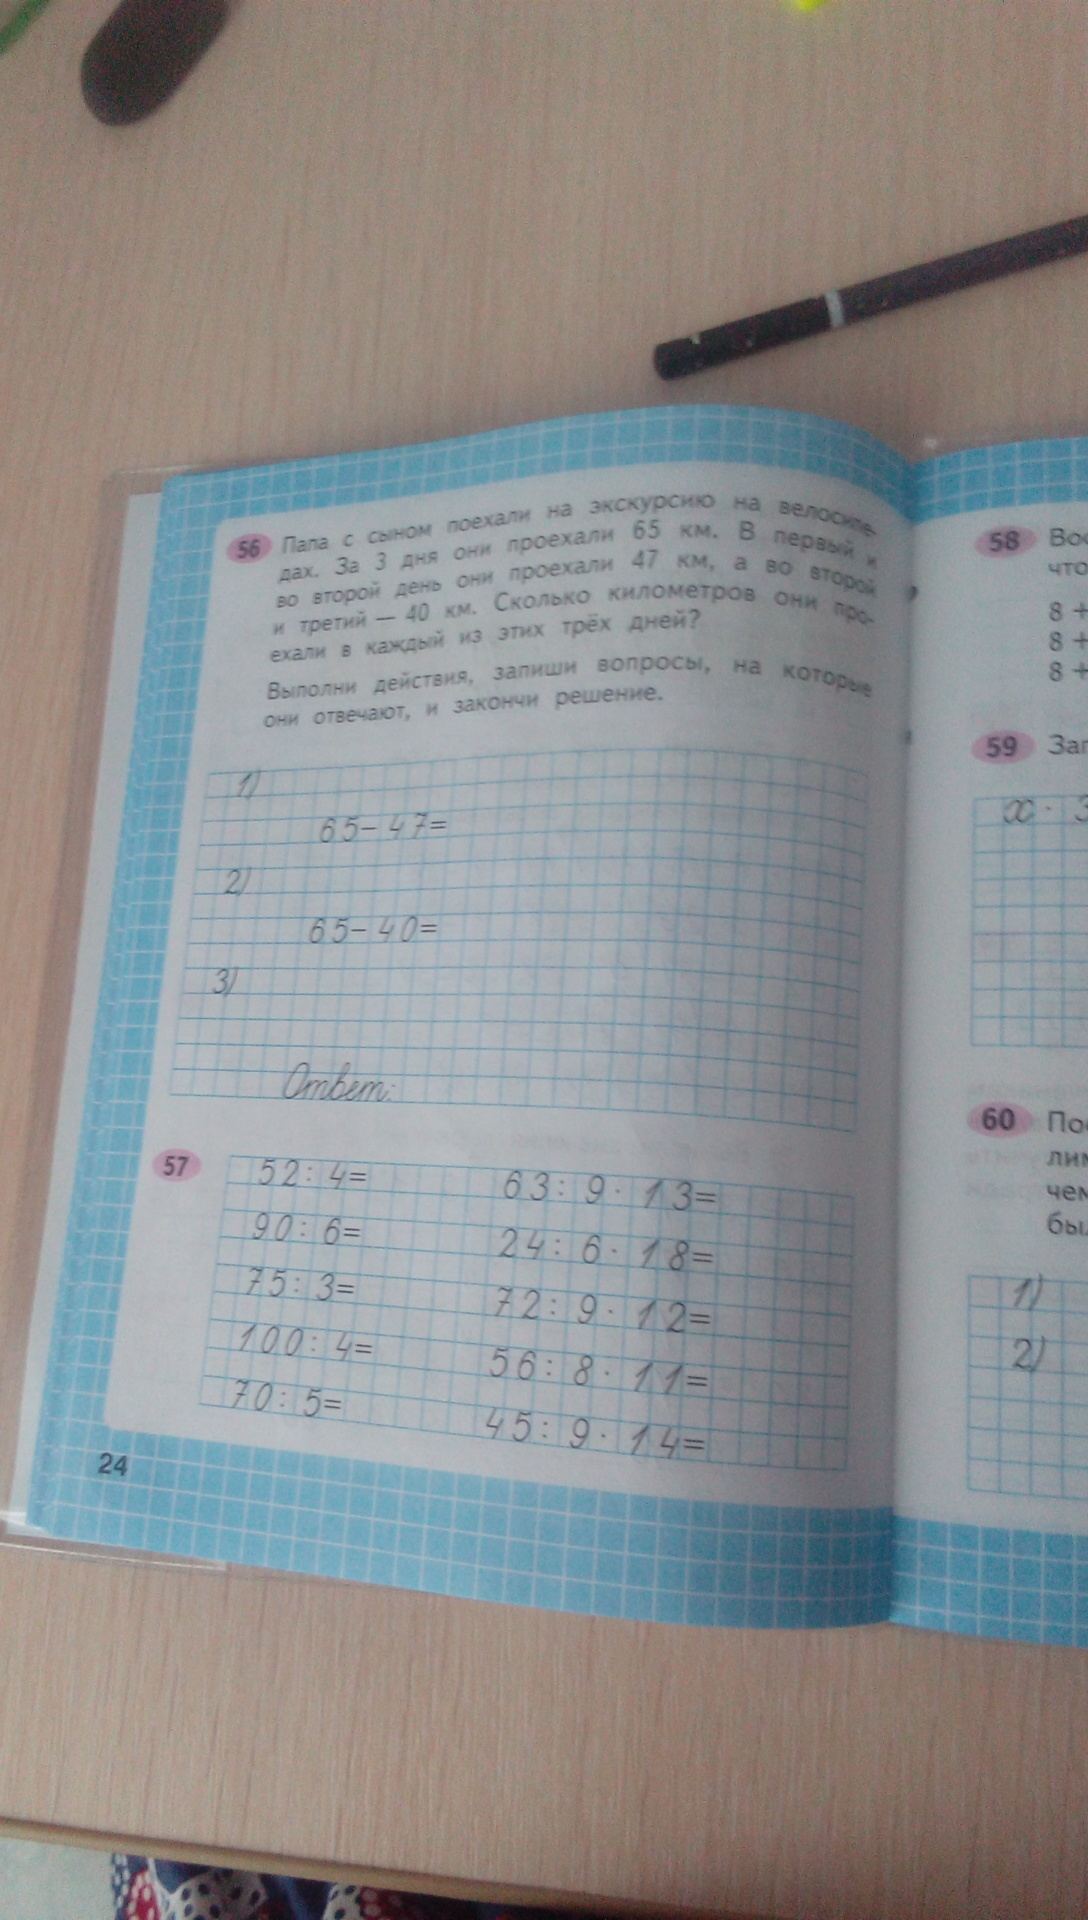 56 Папа с сыном поехали на экскурсию на велосипе-
дах. За 3 дня они проехали 65 км. В первый и
во второй день они проехали 47 км, а во второй
и третий — 40 км. Сколько километров они про-
ехали в каждый из этих трёх дней?
Выполни действия, запиши вопросы, на которые
они отвечают, и закончи решение.
1)
65-47=
2)
65-40=
3)
Ответ:
57
52:4= 63:9·13=
90:6= 24:6·18=
75:3= 72:9·12=
100:4= 56:8·11=
70:5= 45:9·14=
24
58
что
8 +
8 +
8 +
59
x · 3
60
1)
2)